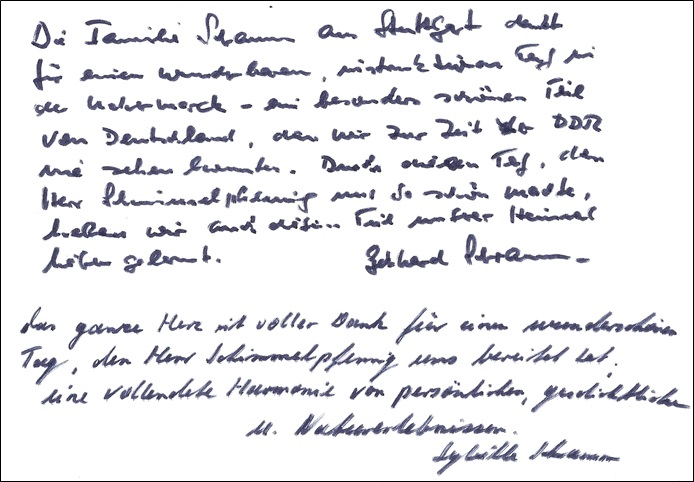 Die Familie Schramm aus Stuttgart dankt
für einen wunderbaren, instruktiven Tag in
der Uckermark - ein besonders schöner Teil
von Deutschland, den wir zur Zeit der DDR
nie sehen konnten. Durch diesen Tag, den
Herr Schimmelpfennig uns so schön machte,
haben wir auch diesen Teil unserer Heimat
lieben gelernt. Gebhard Schramm -
das ganze Herz ist voller Dank für einen wunderschönen
Tag, den Herr Schimmelpfennig uns bereitet hat,
eine vollendete Harmonie von persönlichen, geschichtlichen
u. Naturerlebnissen.
Sybille Schramm